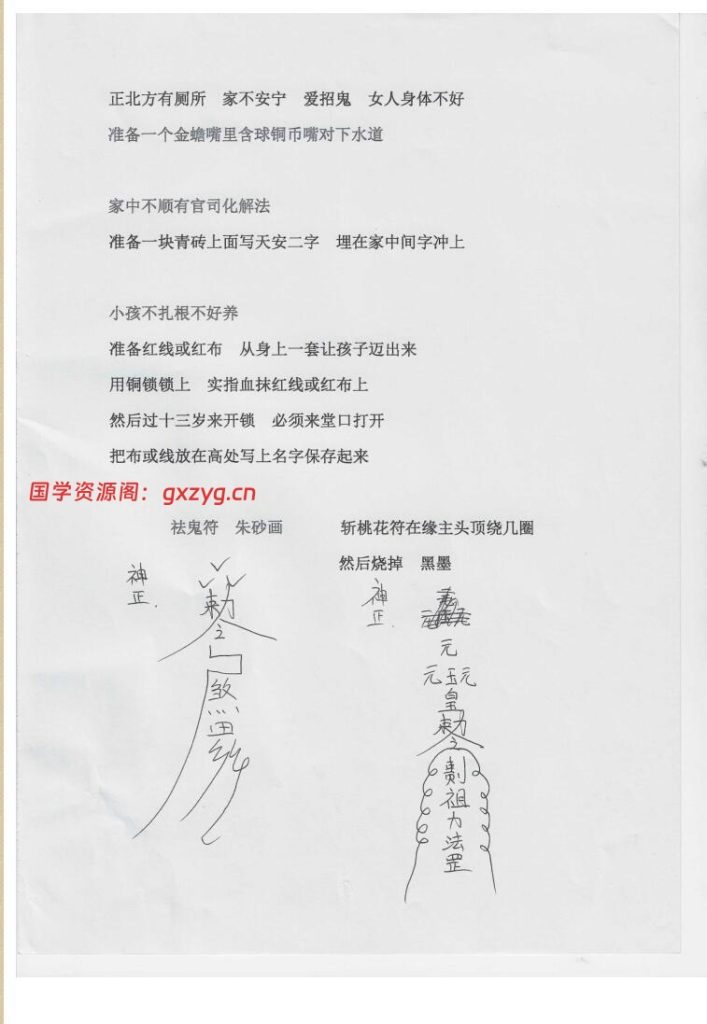 正北方有厕所　家不安宁　爱招鬼　女人身体不好
准备一个金蟾嘴里含球铜币嘴对下水道
家中不顺有官司化解法
准备一块青砖上面写天安二字　埋在家中间字冲上
小孩不扎根不好养
准备红线或红布　从身上一套让孩子迈出来
用铜锁锁上　实指血抹红线或红布上
然后过十三岁来开锁　必须来堂口打开
把布或线放在高处写上名字保存起来
国学资源阁：gxzyg.cn
祛鬼符　朱砂画
斩桃花符在缘主头顶绕几圈
然后烧掉　黑墨
神正.
敕令
煞
神正.
元
元玉元
皇
敕令
祖
力
法
罡